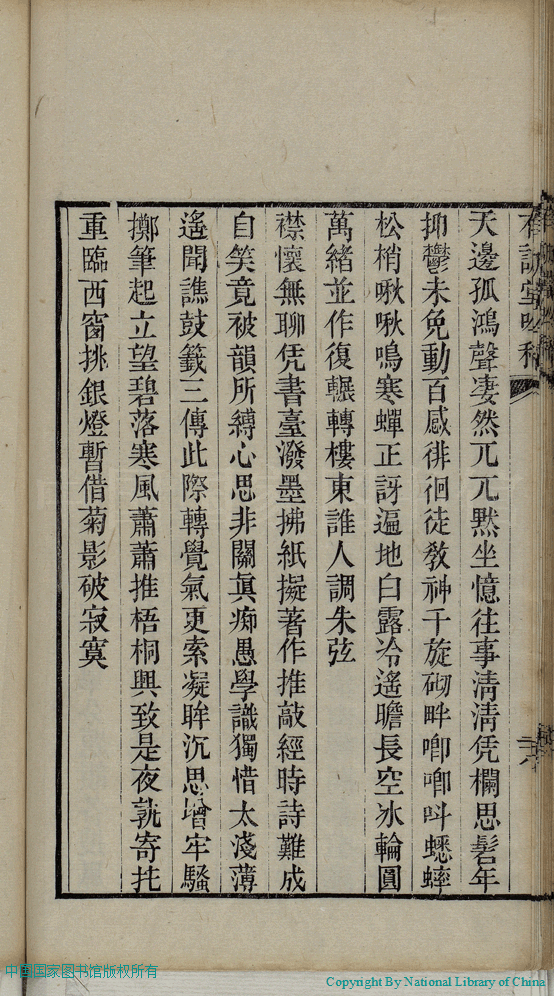 天邊孤鴻聲凄然兀兀默坐憶往事淸淸凭欄思髫年
抑鬱未免動百感徘徊徒敎神千旋砌畔唧唧呌蟋蟀
松梢啾啾鳴寒蟬正訝遍地白露冷遙瞻長空冰輪圓
萬緒並作復輾轉樓東誰人調朱弦
襟懷無聊凭書臺潑墨拂紙擬著作推敲經時詩難成
自笑竟被韻所縛心思非關眞痴愚學識獨惜太淺薄
遙聞譙鼓籤三傳此際轉覺氣更索凝眸沉思增牢騷
擲筆起立望碧落寒風蕭蕭推梧桐興致是夜孰寄托
重臨西窗挑銀燈暫借菊影破寂寞
中国国家图书馆版权所有
Copyright By National Library of China